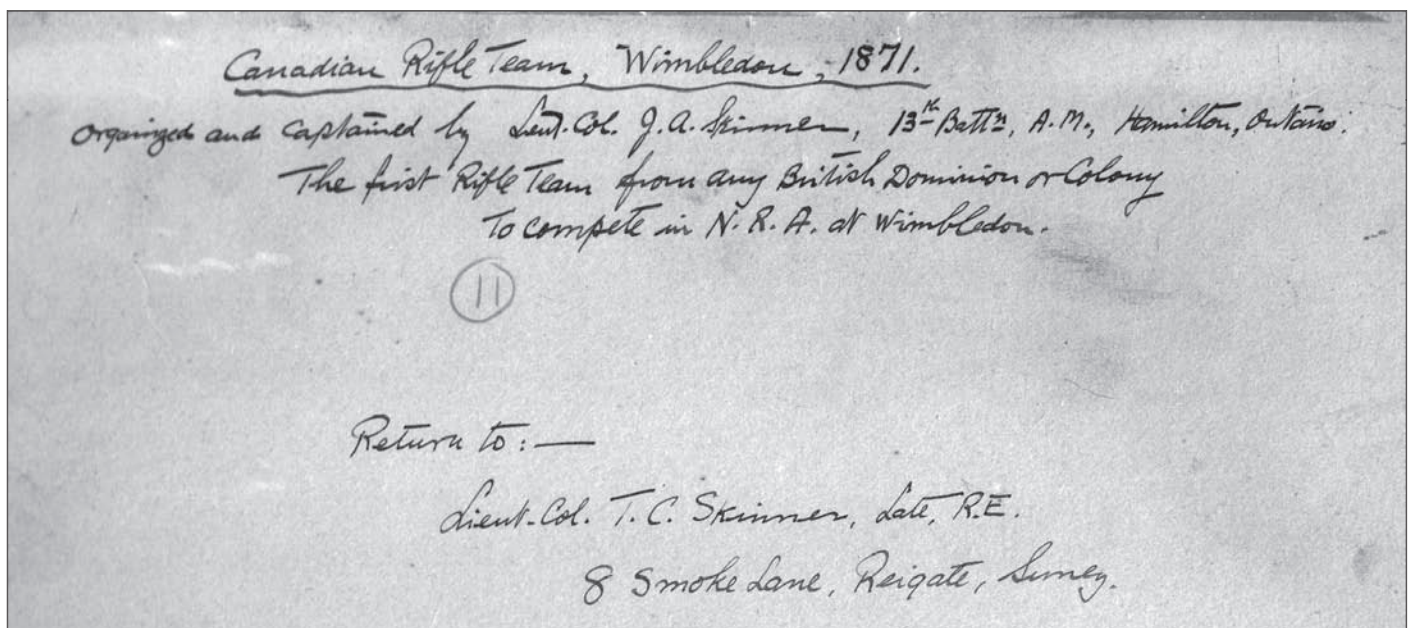 Canadian Rifle Team, Wimbledon, 1871.
Organized and captained by Lieut. Col. J. A. Skinner, 13th Battn, A.M., Hamilton, Ontario.
The first Rifle Team from any British Dominion or Colony
To compete in N. R. A. at Wimbledon.
11
Return to: —
Lieut-Col. T. C. Skinner, Late, R.E.
8 Smoke Lane, Reigate, Surrey.